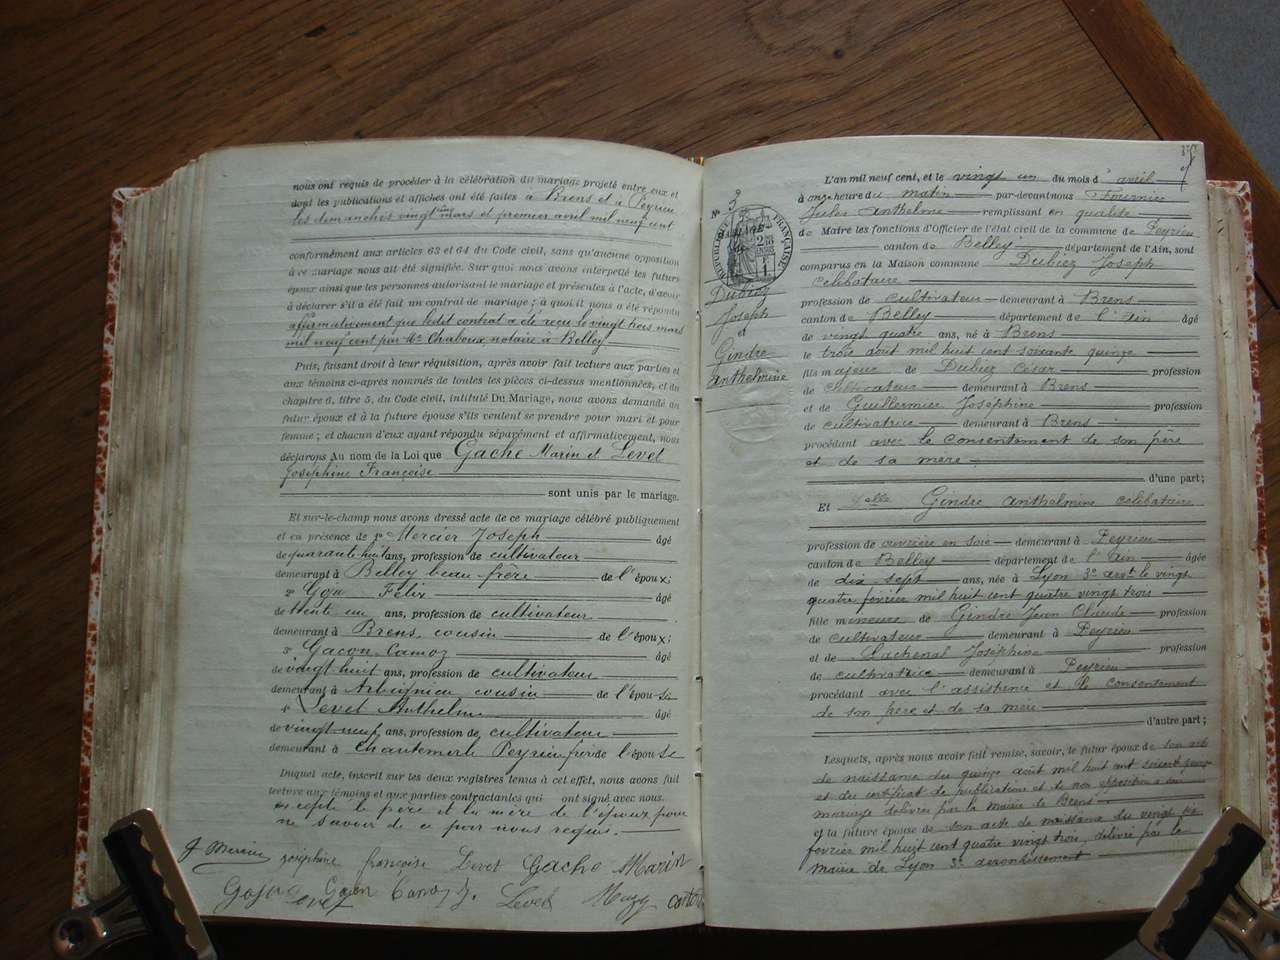 nous ont requis de procéder à la célébration du mariage projeté entre eux et
dont les publications et affiches ont été faites à Brens et à Peyrieu
les dimanches vingt cinq mars et premier avril mil neuf cent
conformément aux articles 63 et 64 du Code civil, sans qu'aucune opposition
à ce mariage nous ait été signifiée. Sur quoi nous avons interpellé les futurs
époux ainsi que les personnes autorisant le mariage et présentes à l'acte, d'avoir
à déclarer s'il a été fait un contrat de mariage ; à quoi il nous a été répondu
affirmativement que ledit contrat a été reçu le vingt trois mars
mil neuf cent par Me Chaboux, notaire à Belley
Puis, faisant droit à leur réquisition, après avoir fait lecture aux parties et
aux témoins ci-après nommés de toutes les pièces ci-dessus mentionnées, et du
chapitre 6, titre 5, du Code civil, intitulé Du Mariage, nous avons demandé au
futur époux et à la future épouse s'ils veulent se prendre pour mari et pour
femme ; et chacun d'eux ayant répondu séparément et affirmativement, nous
déclarons Au nom de la Loi que Gache Marin et Levet
Joséphine Françoise
sont unis par le mariage.
Et sur-le-champ nous avons dressé acte de ce mariage célébré publiquement
et en présence de 1° Mercier Joseph âgé
de quarante huit ans, profession de cultivateur
demeurant à Belley beau-frère de l'époux;
2° Goy Félix âgé
de trente un ans, profession de cultivateur
demeurant à Brens, cousin de l'époux;
3° Gacon Camoz âgé
de vingt huit ans, profession de cultivateur
demeurant à Arbignieu cousin de l'épouse
4° Levet Anthelme âgé
de vingt neuf ans, profession de cultivateur
demeurant à Chantemerle Peyrieu frère de l'épouse
Duquel acte, inscrit sur les deux registres tenus à cet effet, nous avons fait
lecture aux témoins et aux parties contractantes qui ont signé avec nous.
excepté le père et la mère de l'époux pour
ne savoir de ce par nous requis.
J Mercier joséphine françoise Levet Gache Marin
Levet
N° 3
RÉPUBLIQUE FRANÇAISE
Dubiez
Joseph
et
Gindre
Anthelmine
L'an mil neuf cent, et le vingt un du mois d'avril
à onze heure du matin par-devant nous Fournier
Jules Anthelme remplissant en qualité
de Maire les fonctions d'Officier de l'état civil de la commune de Peyrieu
canton de Belley département de l'Ain, sont
comparus en la Maison commune Dubiez Joseph
célibataire
profession de cultivateur demeurant à Brens
canton de Belley département de l'Ain âgé
de vingt quatre ans, né à Brens
le trois août mil huit cent soixante quinze
fils majeur de Dubiez César profession
de cultivateur demeurant à Brens
et de Guillermier Joséphine profession
de cultivatrice demeurant à Brens
procédant avec le consentement de son père
et de sa mère
d'une part;
Et Delle Gindre Anthelmine célibataire
profession de ouvrière en soie demeurant à Peyrieu
canton de Belley département de l'Ain âgée
de dix sept ans, née à Lyon 3e arrt le vingt
quatre février mil huit cent quatre vingt trois
fille mineure de Gindre Jean Claude profession
de cultivateur demeurant à Peyrieu
et de Lachenal Joséphine profession
de cultivatrice demeurant à Peyrieu
procédant avec l'assistance et le consentement
de son père et de sa mère
d'autre part;
Lesquels, après nous avoir fait remise, savoir, le futur époux de son acte
de naissance du quinze août mil huit cent soixante quinze
et du certificat de publication et de non opposition à son
mariage délivrés par la mairie de Brens
et la future épouse de son acte de naissance du vingt six
février mil huit cent quatre vingt trois, délivré par la
mairie de Lyon 3e arrondissement